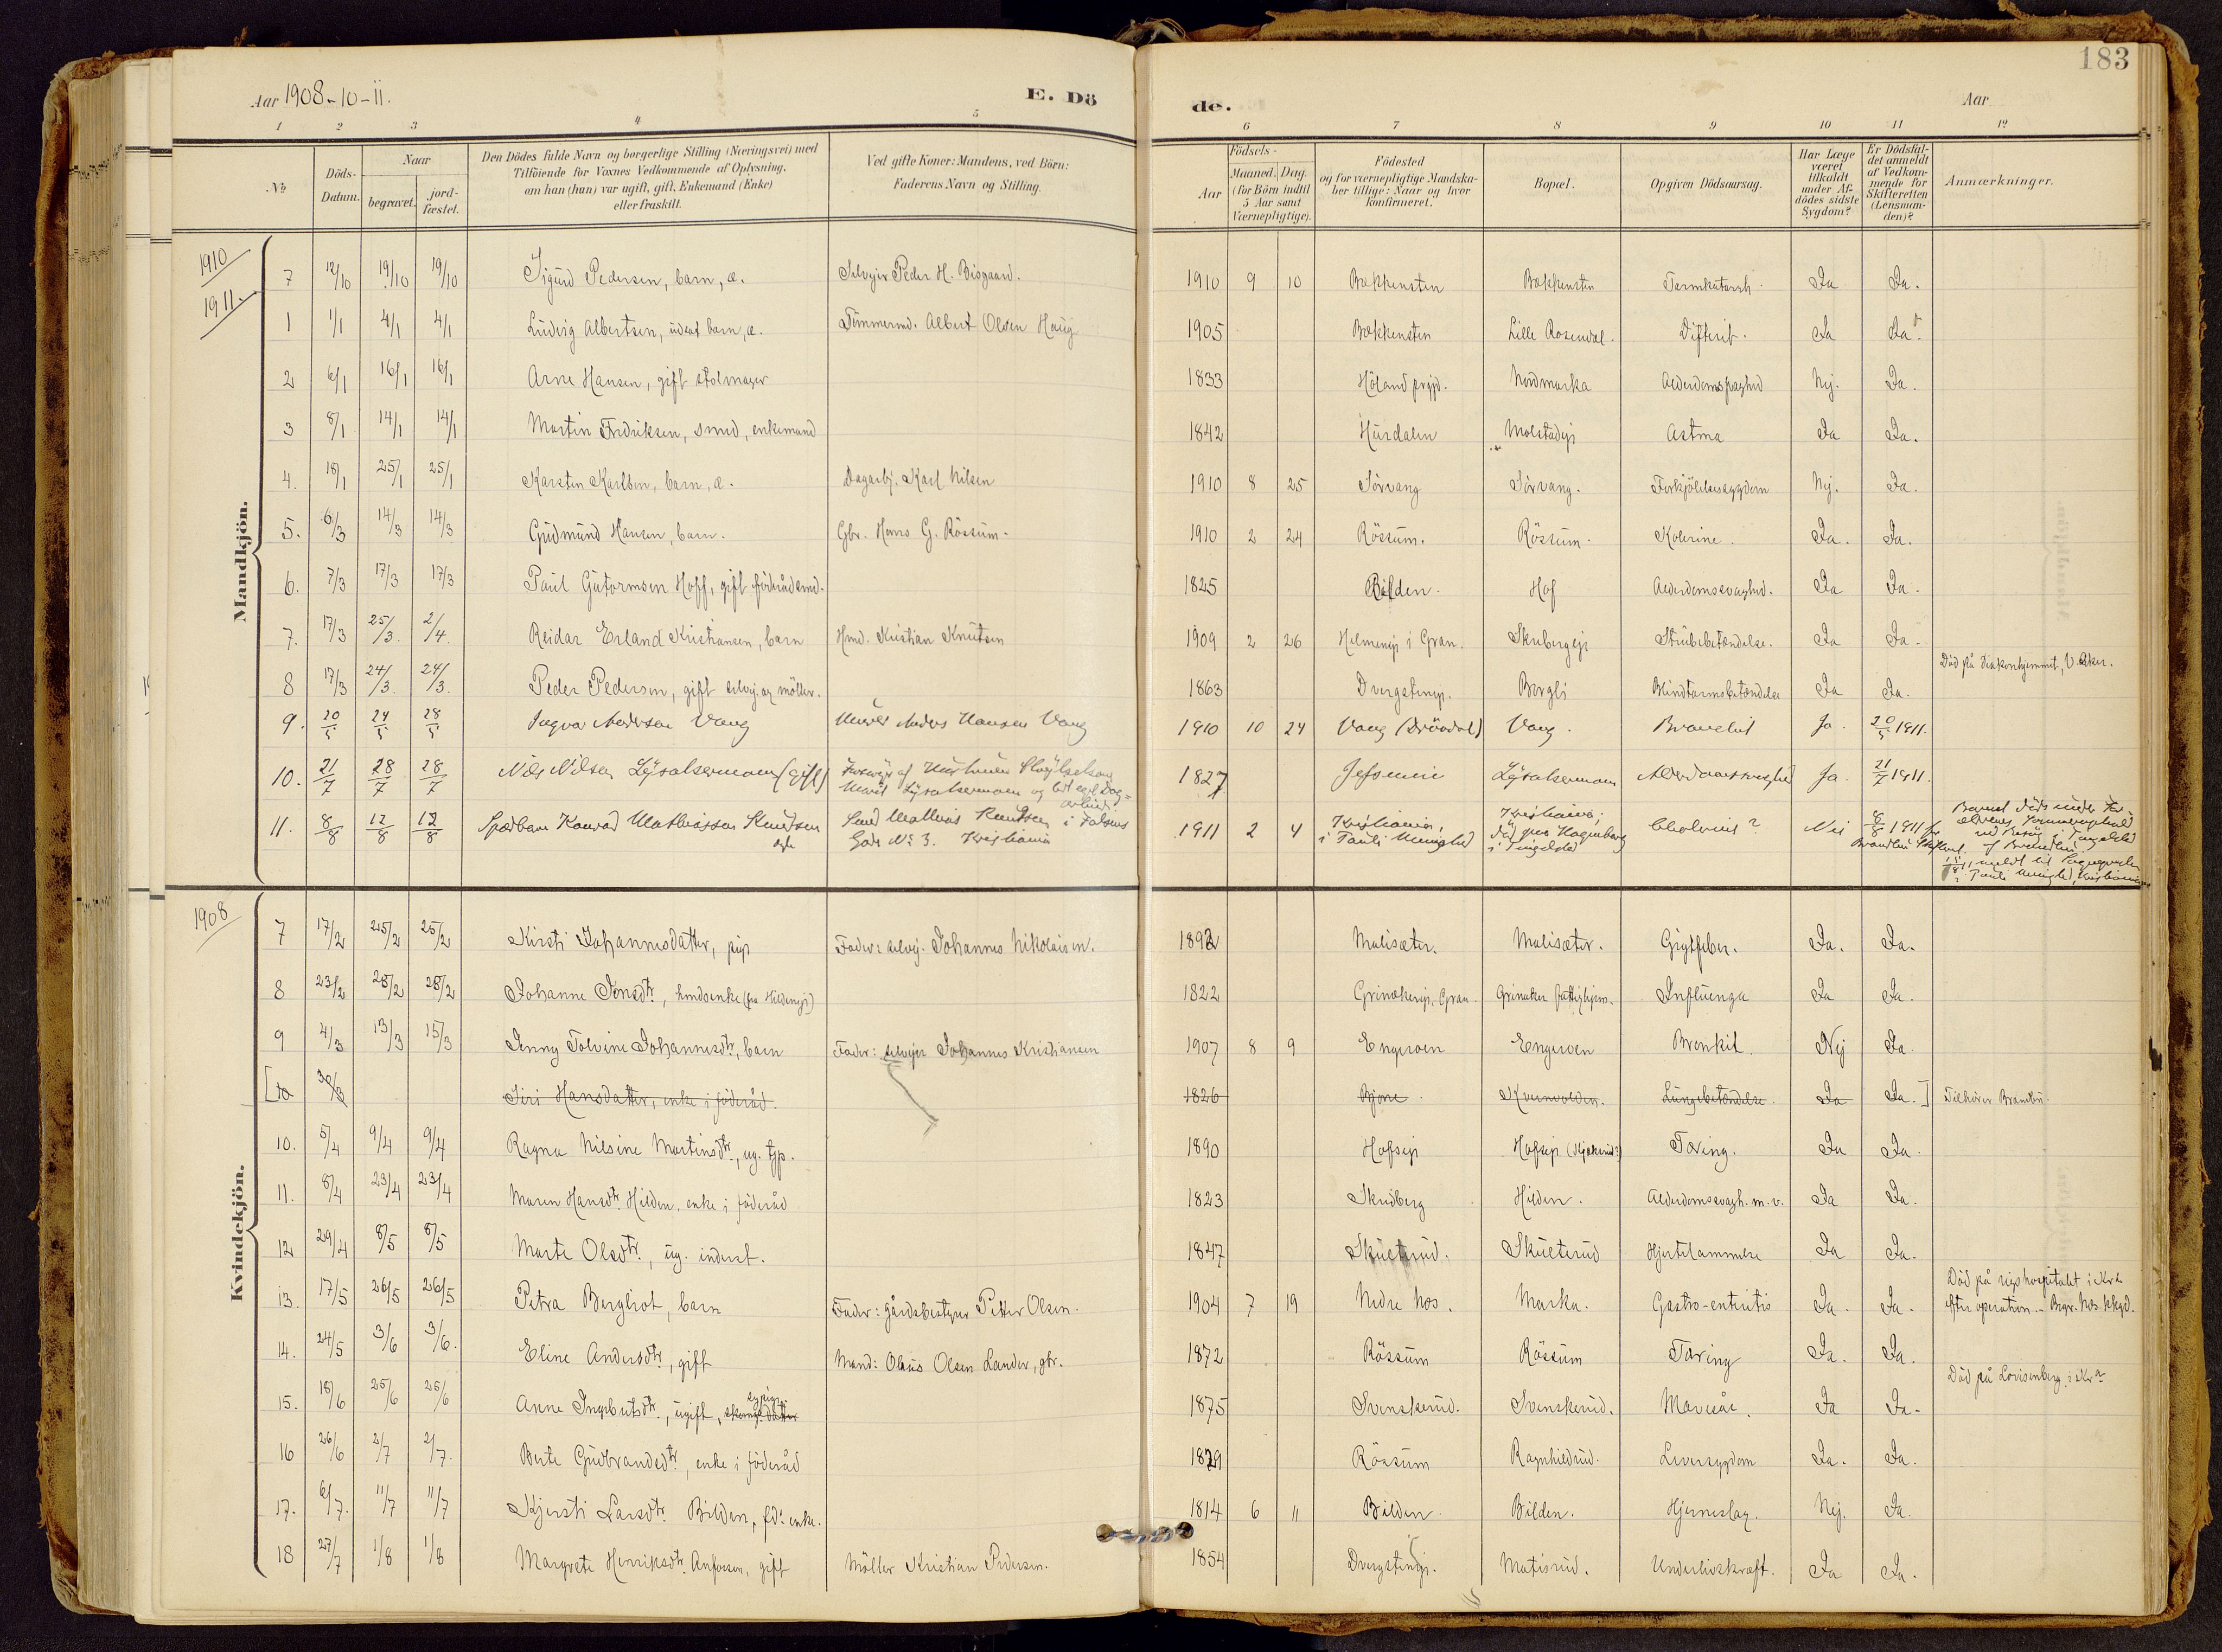 183
Aar 1908-10-11.
E. Dö
de.
Aar
1 2 3 4 5 6 7 8 9 10 11 12
No
Döds-Datum.
Naar
begravet.
jord-fæstet.
Den Dödes fulde Navn og borgerlige Stilling (Næringsvei) med
Tilföiende for Voxnes Vedkommende af Oplysning,
om han (hun) var ugift, gift, Enkemand (Enke)
eller fraskilt.
Ved gifte Koner: Mandens, ved Börn:
Faderens Navn og Stilling.
Födsels-
Aar
Maaned. Dag.
(for Börn indtil
5 Aar samt
Værnepligtige).
Födested
og for værnepligtige Mandska-
ber tillige: Naar og hvor
konfirmeret.
Bopæl.
Opgiven Dödsaarsag.
Har Læge
været
tilkaldt
under Af-
dödes sidste
Sygdom?
Er Dödsfal-
det anmeldt
af Vedkom-
mende for
Skifteretten
(Lensman-
den)?
Anmærkninger.
Mandkjön.
1910
7 12/10 19/10 19/10 Sigurd Pedersen, barn, æ. Selveier Peder H. Bisgaard. 1910 9 10 Bækkensten Bækkensten Tarmkatarrh. Ja Ja.
1911.
1 1/1 4/1 4/1 Ludvig Albertsen, barn, æ. Tömmermd. Albert Olsen Haug 1905 Bækkensten Lille Rosendal. Difterit. Ja Ja.
2 6/1 16/1 16/1 Arne Hansen, gift stolmager 1833 Höland prgjd. Nordmarka Alderdomssvaghed Nej. Ja.
3 8/1 14/1 14/1 Martin Fredriksen, smed, enkemand 1842 Hurdalen Molstadejr Astma Ja Ja.
4. 18/1 25/1 25/1 Karsten Karlsen, barn, æ. Dagarbj. Karl Nilsen 1910 8 25 Sörvang Sörvang. Forkjölelsessygdom Nej. Ja.
5. 6/3 14/3 14/3 Gudmund Hansen, barn. Gbr. Hans G. Rössum. 1910 2 24 Rössum. Rössum. Kolerine. Ja. Ja.
6. 7/3 17/3 17/3 Paul Gutormsen Hoff, gift föderådsmd. 1825 Bilden. Hof Alderdomssvaghed. Ja Ja.
7. 17/3 25/3. 2/4. Reidar Erland Kristiansen, barn Hmd. Kristian Knutsen 1909 2 26 Helmenejr i Gran. Skrebergejr Strubebetændelse. Ja Ja.
8 17/3 24/3. 24/3. Peder Pedersen, gift selvej. og möller. 1863 Dvergstenejr. Bergli Blindtarmsbetændelse Ja Ja. Död på Diakonhjemmet, V. Aker.
9. 20/5 24/5 28/5 Ingvar Andersen Vang Murer Anders Hansen Vang 1910 10 24 Vang (Dröndal) Vang. Bronchit Ja. 20/5 1911.
10. 21/7 28/7 28/7 Nils Nilsen Lysakermoen (gift) 1827 Lysakermoen Alderdomssvaghed Ja. 21/7 1911.
11. 8/8 12/8 12/8 Spædbarn Konrad Mathiassen Knudsen Smed Mathias Knudsen i Falsens Gade No 3. Kristiania 1911 2 4 Kristiania, i Pauli Menighed Kristiania; död paa Hagenborg i Tingelstad Cholerine? Nei 8/8 1911
Kvindekjön.
1908
7 17/2 25/2 25/2 Kirsti Johannesdatter, pige Fader: selvej. Johannes Nikolaisen. 1892 Malisæter. Malisæter. Gigtfeber. Ja. Ja.
8 23/2 28/2 28/2 Johanne Jonsdtr, hmdsenke (fra Hildenejr) 1822 Grinakerejr, Gran. Grinaker fattighjem. Influenza Ja Ja.
9 4/3 13/3 15/3 Jenny Tolvine Johannesdtr, barn Fader: selvejer Johannes Kristiansen 1907 8 9 Engeroen Engeroen Bronkit. Nej Ja.
[10 30/3 Siri Hansdatter, enke i föderåd. 1826 Bjone. Kvernvolden. Lungebetændelse. Ja Ja.] Tilhörer Brandbu.
10. 5/4 9/4 9/4 Ragna Nilsine Martinsdtr., ug. tjp. 1890 Hofsejr Hofsejr Tæring. Ja Ja.
11. 8/4 23/4 23/4 Maren Hansdtr. Hilden, enke i föderåd 1823 Skedberg Hilden. Alderdomssvagh. m. v. Ja Ja.
12 29/4 8/5 8/5 Marte Olsdtr., ug. inderst. 1847 Skuterud. Skuterud Hjertelammelse Ja Ja.
13. 17/5 26/5 26/5 Petra Bergliot, barn Fader: gårdsbestyrer Petter Olsen. 1904 7 19 Nedre Næs. Marka. Gastro-enteritis Ja. Ja. Död på rigshospitalet i Kr.a efter operation. - Begr. Næs kkgd.
14. 24/5 3/6 3/6. Eline Andersdtr., gift Mand: Olaus Olsen Lander, gbr. 1872 Rössum Rössum Tæring Ja. Ja.
15. 18/6 25/6 25/6 Anne Ingebretsdtr., ugift, sypige 1875 Svenskerud. Svenskerud. Mavesår. Ja Ja. Död på Lovisenberg i Kr.a
16 26/6 2/7 2/7. Berte Gudbrandsdtr., enke i föderåd 1829 Rössum Ragnhildrud. Leversygdom Ja. Ja.
17. 6/7. 11/7 11/7 Kjersti Larsdtr. Bilden, fd. enke. 1814 6 11 Bilden. Bilden. Hjerneslag. Nej. Ja.
18 27/7 1/8 1/8 Margrete Henriksdtr. Anfinsen, gift Möller Kristian Pedersen. 1854 Dvergstenejr. Matisrud. Underlivskræft. Ja Ja.